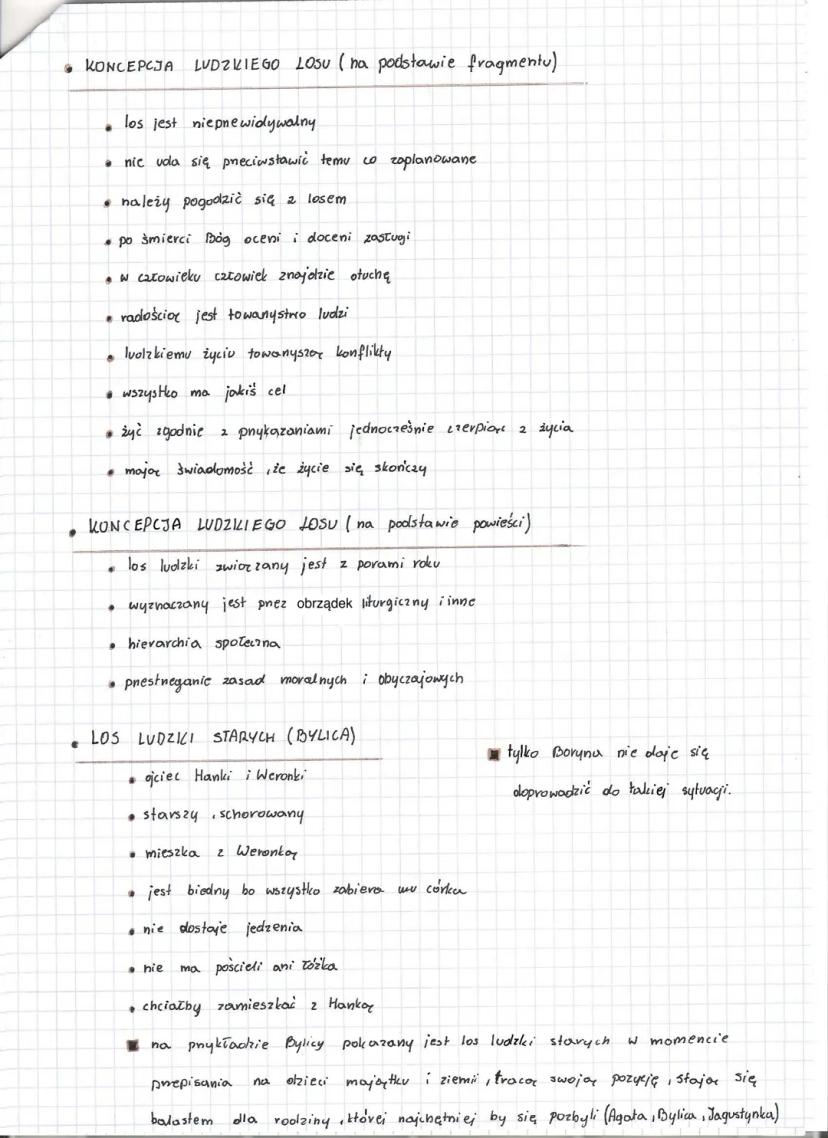 KONCEPCJA LUDZKIEGO LOSU (na podstawie fragmentu)
los jest nieprzewidywalny
nic uda się przeciwstawić temu co zaplanowane
należy pogodzić się z losem
po śmierci Bóg oceni i doceni zasługi
w człowieku człowiek znajdzie otuchę
radością jest towarzystwo ludzi
ludzkiemu życiu towarzyszą konflikty
wszystko ma jakiś cel
żyć zgodnie z przykazaniami jednocześnie czerpiąc z życia
mając świadomość, że życie się skończy
KONCEPCJA LUDZKIEGO LOSU (na podstawie powieści)
los ludzki związany jest z porami roku
wyznaczany jest przez obrządek liturgiczny i inne
hierarchia społeczna
przestrzeganie zasad moralnych i obyczajowych
LOS LUDZKI STARYCH (BYLICA)
ojciec Hanki i Weronki
starszy, schorowany
mieszka z Weronką
jest biedny bo wszystko zabiera mu córka
nie dostaje jedzenia
nie ma pościeli ani łóżka
chciałby zamieszkać z Hanką
tylko Boryna nie daje się
doprowadzić do takiej sytuacji.
na przykładzie Bylicy pokazany jest los ludzki starych w momencie
przepisania na dzieci majątku i ziemii, tracą swoją pozycję, stają się
balastem dla rodziny, której najchętniej by się pozbyli (Agata, Bylica, Jagustynka)